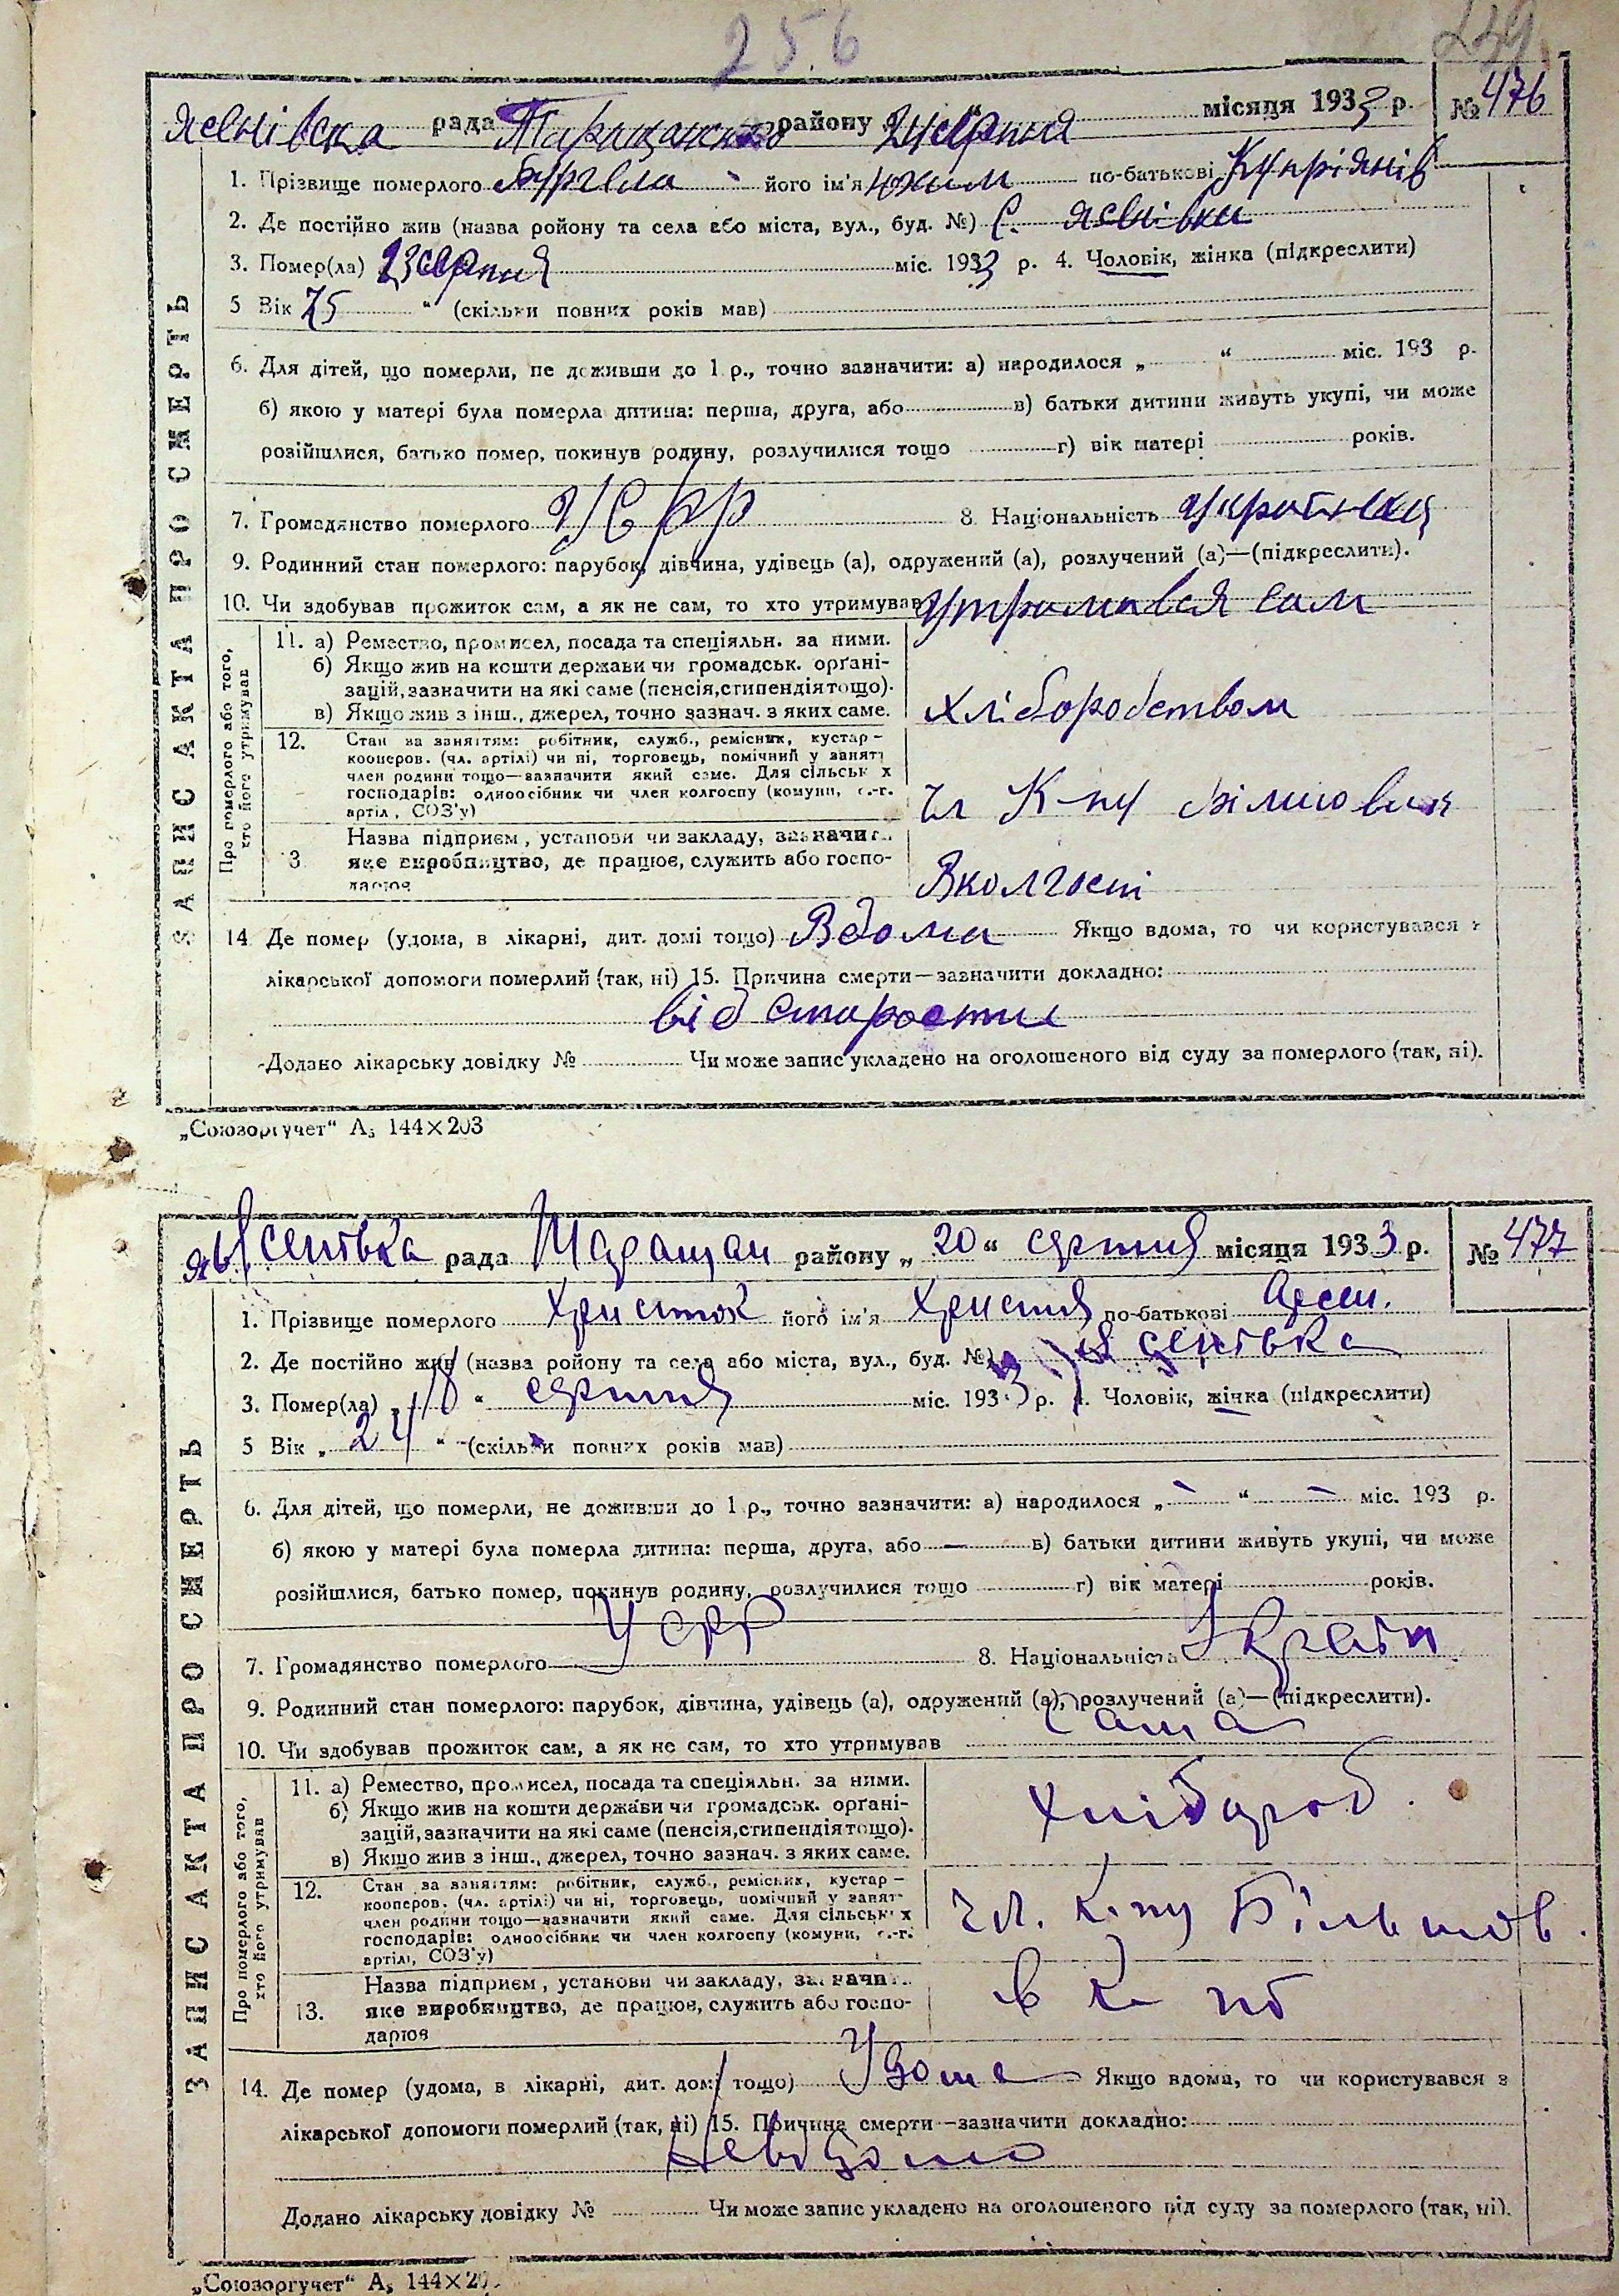 256
239
Ясенівска рада Таращанского району 24 серпня місяця 1933 р. № 476
1. Прізвище померлого Бургела його ім'я Юхим по-батькові Купріянів
2. Де постійно жив (назва ройону та села або міста, вул., буд. №) С. Ясенівки
3. Помер(ла) 23 серпня міс. 1933 р. 4. Чоловік, жінка (підкреслити)
5 Вік 75 “ (скільки повних років мав)
6. Для дітей, що померли, не доживши до 1 р., точно зазначити: а) народилося „ “ міс. 193 р.
б) якою у матері була померла дитина: перша, друга, або в) батьки дитини живуть укупі, чи може
розійшлися, батько помер, покинув родину, розлучилися тощо г) вік матері років.
7. Громадянство померлого УСРР 8. Національність Українец
9. Родинний стан померлого: парубок, дівчина, удівець (а), одружений (а), розлучений (а)—(підкреслити).
10. Чи здобував прожиток сам, а як не сам, то хто утримував утримався сам
ЗАПИС АКТА ПРО СМЕРТЬ
Про померлого або того,
хто його утримував
11. а) Ремество, промисел, посада та спеціяльн. за ними.
б) Якщо жив на кошти держави чи громадськ. орґані-
зацій, зазначити на які саме (пенсія, стипендія тощо).
в) Якщо жив з інш., джерел, точно зазнач. з яких саме.
Хліборобством
12. Стан за заняттям: робітник, служб., ремісник, кустар—
кооперов. (чл. артілі) чи ні, торговець, помічний у занят
член родини тощо—зазначити який саме. Для сільськ х
господарів: одноосібник чи член колгоспу (комуни, с.-г.
артіл, СОЗ'у)
чл К-пу більшовик
3. Назва підприєм, установи чи закладу, зазначи
яке виробництво, де працює, служить або госпо-
дарює
Вколгоспі
14 Де помер (удома, в лікарні, дит. домі тощо) Вдома Якщо вдома, то чи користувався з
лікарської допомоги померлий (так, ні) 15. Причина смерти—зазначити докладно:
від старости
Додано лікарську довідку № Чи може запис укладено на оголошеного від суду за померлого (так, ні).
„Союзоргучет“ А₅ 144×203
Ясенівка рада Таращан району „ 20 “ серпня місяця 1933 р. № 477
1. Прізвище померлого Христюк його ім'я Христия по-батькові Арсен.
2. Де постійно жив (назва ройону та села або міста, вул., буд. №) Ясенівка
3. Помер(ла) „ 18 “ серпня міс. 1933 р. 4. Чоловік, жінка (підкреслити)
5 Вік „ 24 “ (скільки повних років мав)
6. Для дітей, що померли, не доживши до 1 р., точно зазначити: а) народилося „ – “ – міс. 193 р.
б) якою у матері була померла дитина: перша, друга, або — в) батьки дитини живуть укупі, чи може
розійшлися, батько помер, покинув родину, розлучилися тощо г) вік матері років.
7. Громадянство померлого УСРР 8. Національність Україн.
9. Родинний стан померлого: парубок, дівчина, удівець (а), одружений (а), розлучений (а)—(підкреслити).
10. Чи здобував прожиток сам, а як не сам, то хто утримував сама
ЗАПИС АКТА ПРО СМЕРТЬ
Про померлого або того,
хто його утримував
11. а) Ремество, промисел, посада та спеціяльн. за ними.
б) Якщо жив на кошти держави чи громадськ. орґані-
зацій, зазначити на які саме (пенсія, стипендія тощо).
в) Якщо жив з інш., джерел, точно зазнач. з яких саме.
хлібороб.
12. Стан за заняттям: робітник, служб., ремісник, кустар—
кооперов. (чл. артілі) чи ні, торговець, помічний у занят
член родини тощо—зазначити який саме. Для сільськ х
господарів: одноосібник чи член колгоспу (комуни, с.-г.
артілі, СОЗ'у)
чл. к-пу Більшов.
13. Назва підприєм, установи чи закладу, зазначи
яке виробництво, де працює, служить або госпо-
дарює
14. Де помер (удома, в лікарні, дит. домі тощо) Удома Якщо вдома, то чи користувався з
лікарської допомоги померлий (так, ні) 15. Причина смерти—зазначити докладно:
невідомо
Додано лікарську довідку № Чи може запис укладено на оголошеного від суду за померлого (так, ні).
„Союзоргучет“ А₅ 144×20